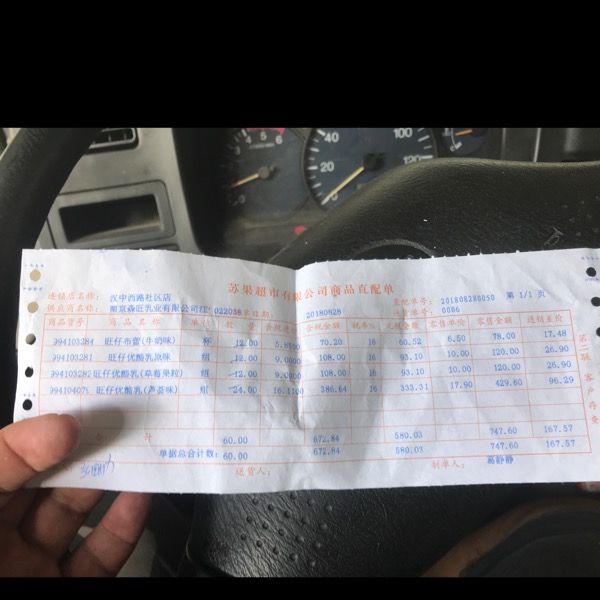 苏果超市有限公司商品直配单
连锁店名称: 汉中西路社区店 直配单号: 201808288050 第 1/1 页
供应商名称: 南京森旺乳业有限公司 022038 单日期: 20180828 送货单号: 0086
商品货号 商 品 名 称 单位 数 量 含税 含税金额 税率% 无税金额 零售单价 零售金额 进销差价
994103284 旺仔布蕾(牛奶味) 杯 12.00 5.8500 70.20 16 60.52 6.50 78.00 17.48
994103281 旺仔优酪乳原味 组 12.00 9.0000 108.00 16 93.10 10.00 120.00 26.90
994103282 旺仔优酪乳(草莓果粒) 组 12.00 9.0000 108.00 16 93.10 10.00 120.00 26.90
994104079 旺仔优酪乳(芦荟味) 组 24.00 16.1100 386.64 16 333.31 17.90 429.60 96.29
计 60.00 672.84 580.03 747.60 167.57
单据总合计数: 60.00 672.84 580.03 747.60 167.57
送货人: 制单人:
第二联 客户存查
40 100 120